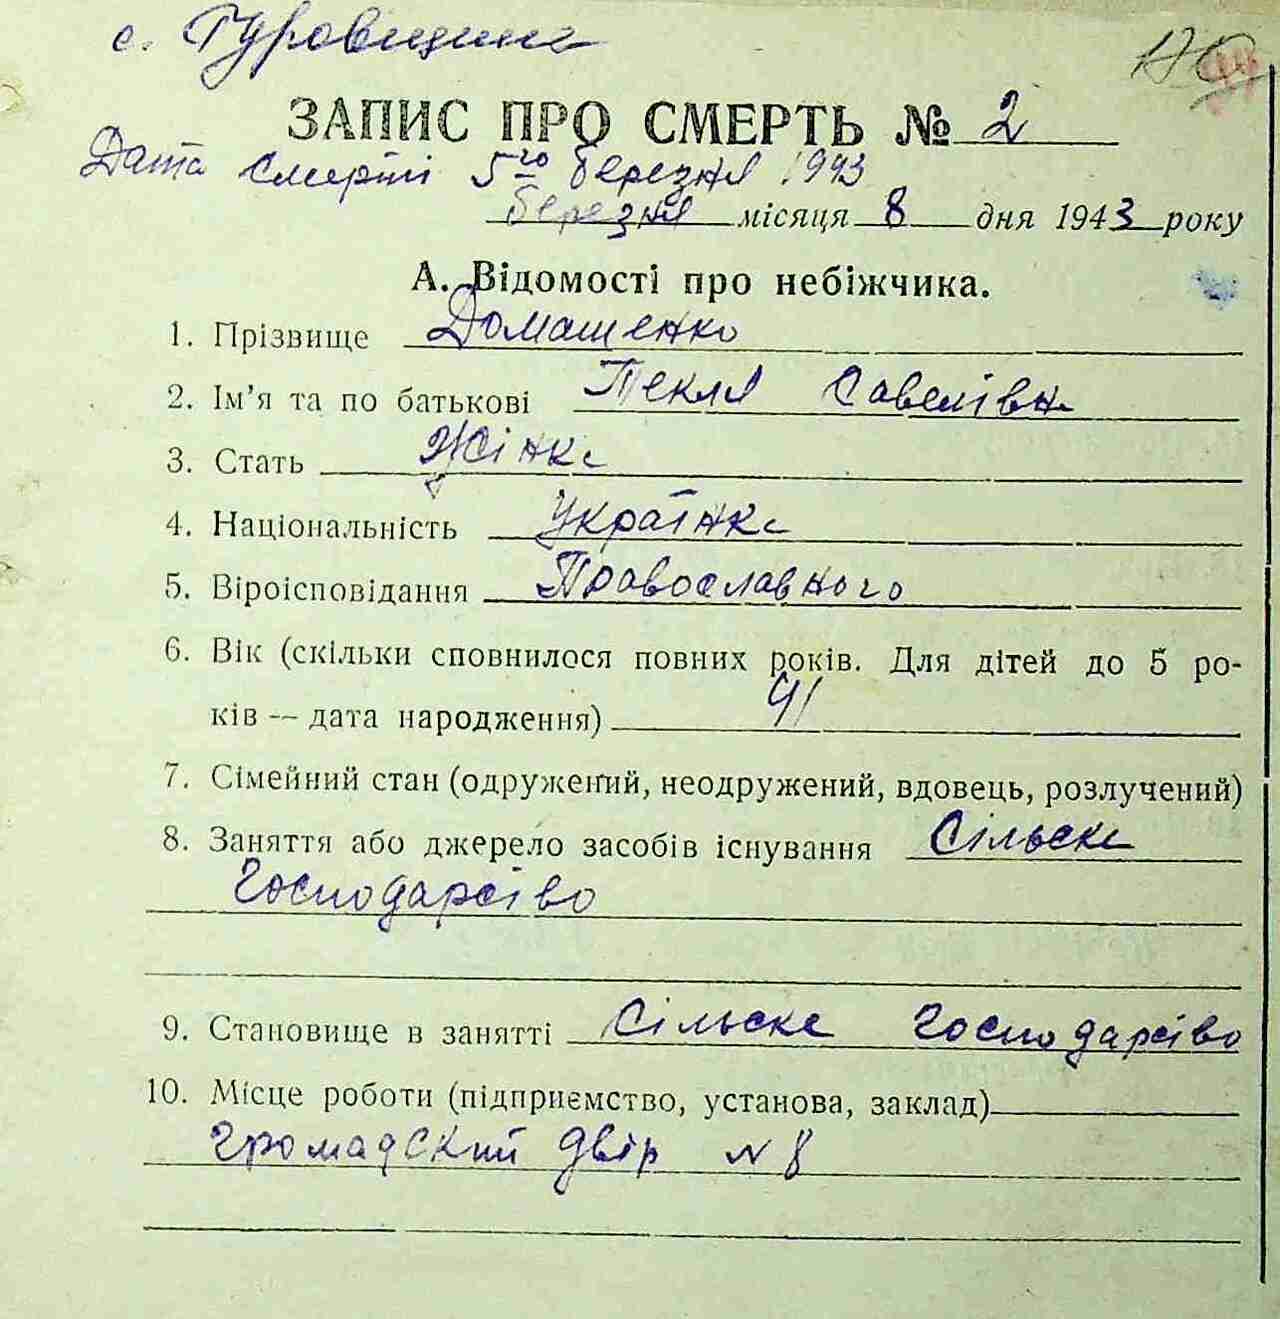 с. Туровщина
ЗАПИС ПРО СМЕРТЬ № 2
Дата смерті 5го березня 1943
березня місяця 8 дня 1943 року
А. Відомості про небіжчика.
1. Прізвище Домашенко
2. Ім'я та по батькові Текля Савелівна
3. Стать Жінка
4. Національність Українка
5. Віроісповідання Православного
6. Вік (скільки сповнилося повних років. Для дітей до 5 ро-
ків — дата народження) 41
7. Сімейний стан (одружений, неодружений, вдовець, розлучений)
8. Заняття або джерело засобів існування Сільске
Господарсіво
9. Становище в занятті Сільске Господарсіво
10. Місце роботи (підприємство, установа, заклад)
Громадский двір N 8